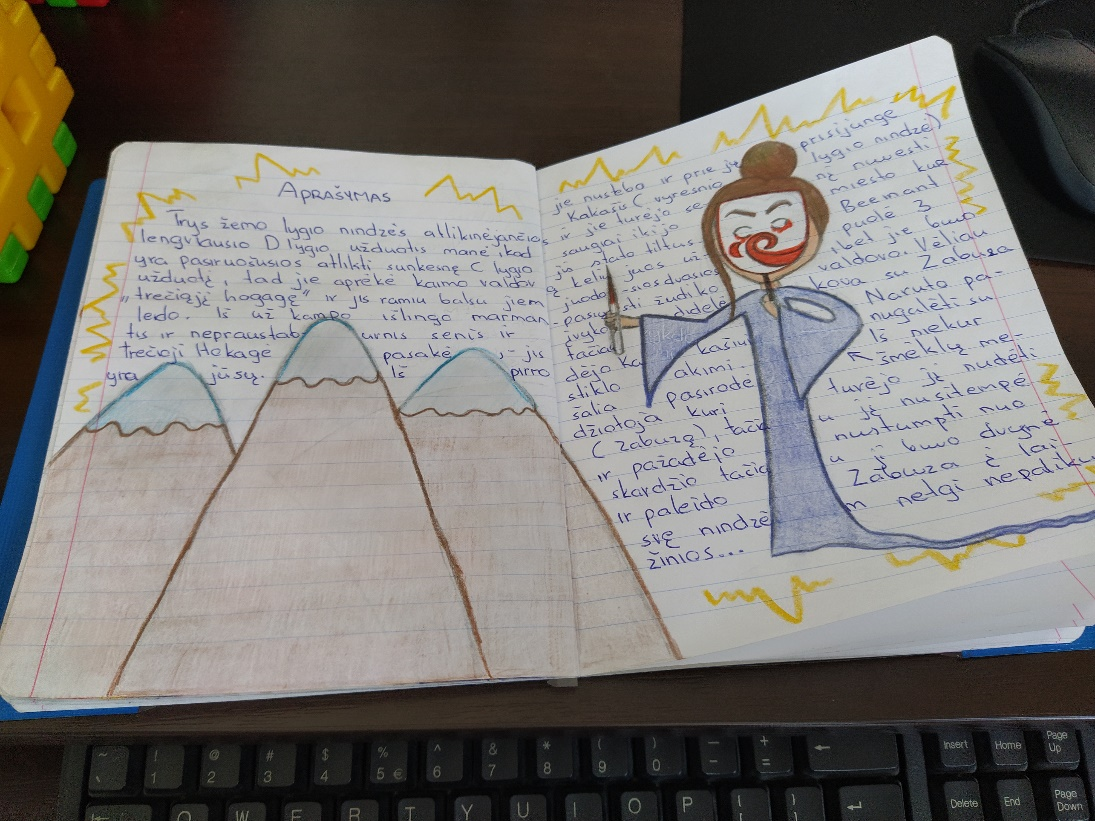 APRAŠYMAS
Trys žemo lygio nindzės atlikinėjančios
lengviausio D lygio užduotis manė, kad
yra pasiruošusios atlikti sunkesnę C lygio
užduotį, tad jie aprėkė kaimo valdov
"trečiąjį hogagę" ir jis ramiu balsu jiem
ledo. Iš už kampo išlingo marman
tus ir nepraustab urnis senis ir
trečioji Hokage pasakė - jis
yra jūsų. Iš pirro
jie nustebo ir prie jų prisijungė
Kakašis (vyresnio lygio nindzė)
ir jie turėjo nuvesti
saugiai iki jo miesto kur
jis stato tiltus Beemant
kelių juos puolė 3
juoda ibet jie buvo
žudiko valdovo. Vėliau
įvyko didelė kova su Zabuza
tačia Naruto pa-
dėjo Kakašiu nugalėti su
stiklo akimi Iš niekur
šalia pasirodė šmėklų me
džiotoja kuri turėjo jį nudėti
(Zabuzą), tačia u jį nusitempė
ir pažadėjo nustumpti nuo
skardžio tačia u ji buvo dvynė
ir paleido Zabuza č lai-
svę nindzė m netgi nepaliku
žinios...
~
`
!
1
@
2
#
3
$
4
%
5 €
^
6
&
7
*
8
(
9
)
0
_
-
+
=
Insert
Home
Page Up
Q
W
E
R
T
Y
U
I
O
P
Delete
End
Page Down